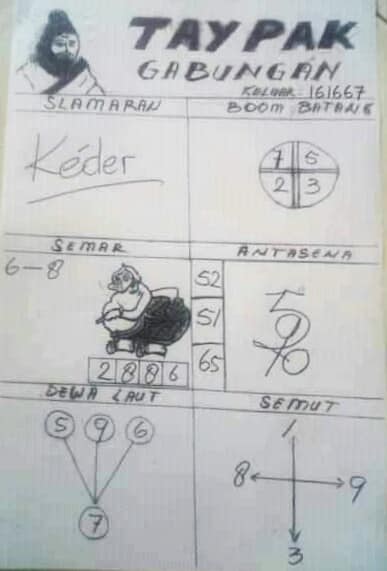 TAYPAK
GABUNGAN
KELUAR 161667
SLAMARAN
BOOM BATANG
Kéder
7 5
2 3
SEMAR
ANTASENA
6-8
52
51
65
2 8 8 6
DEWA LAUT
SEMUT
5 9 6
7
1
8 9
3